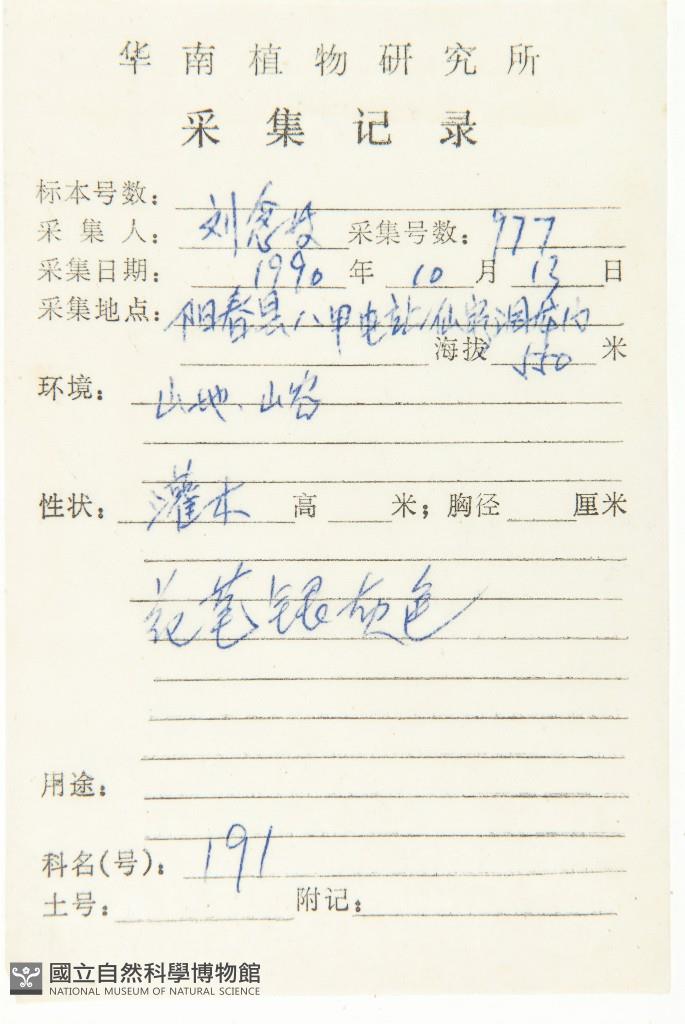 华南植物研究所
采集记录
标本号数：
采集人：刘念 采集号数：777
采集日期：1990年10月13日
采集地点：阳春县八甲电站仙家洞库内
海拔550米
环境：山地、山谷
性状：灌木 高 米；胸径 厘米
花 银灰色
用途：
科名(号)：191
土号： 附记：
國立自然科學博物館
NATIONAL MUSEUM OF NATURAL SCIENCE